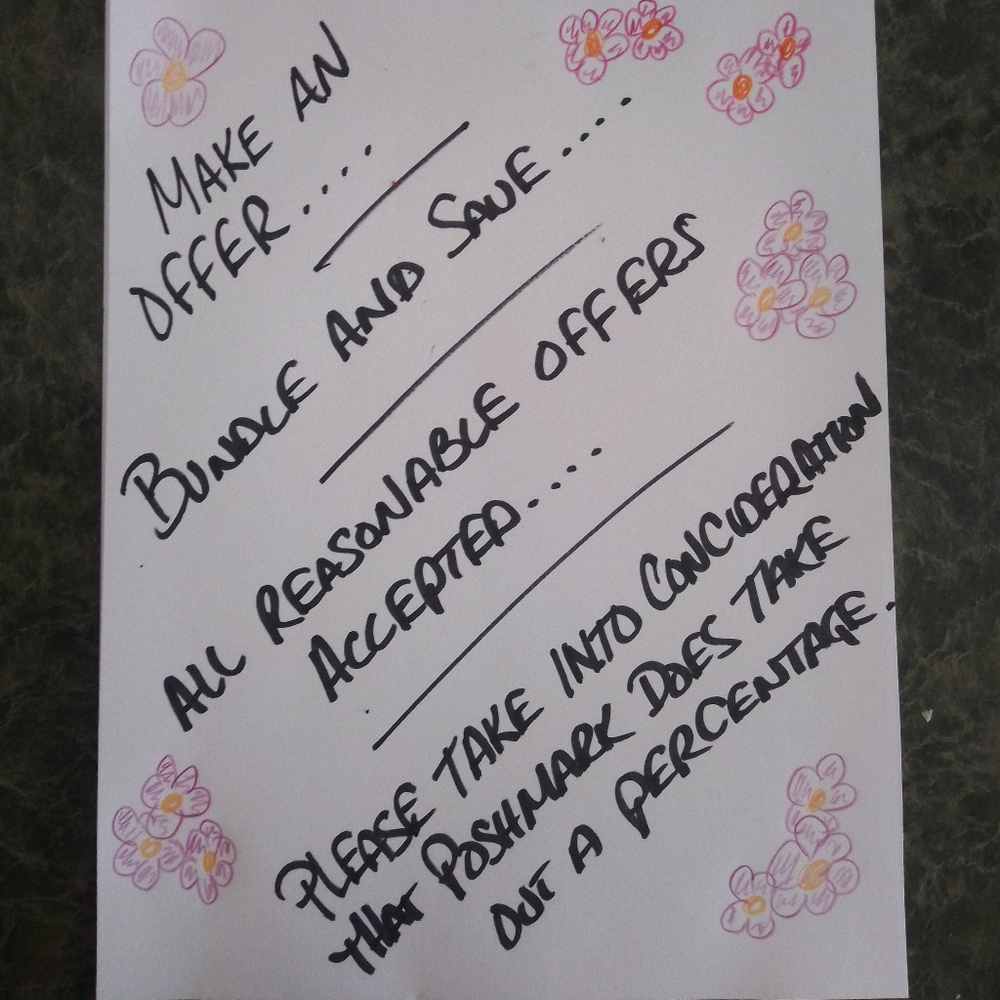 MAKE AN
OFFER....
BUNDLE AND SAVE....
ALL REASONABLE OFFERS
ACCEPTED....
PLEASE TAKE INTO CONCIDERATION
THAT POSHMARK DOES TAKE
OUT A PERCENTAGE.